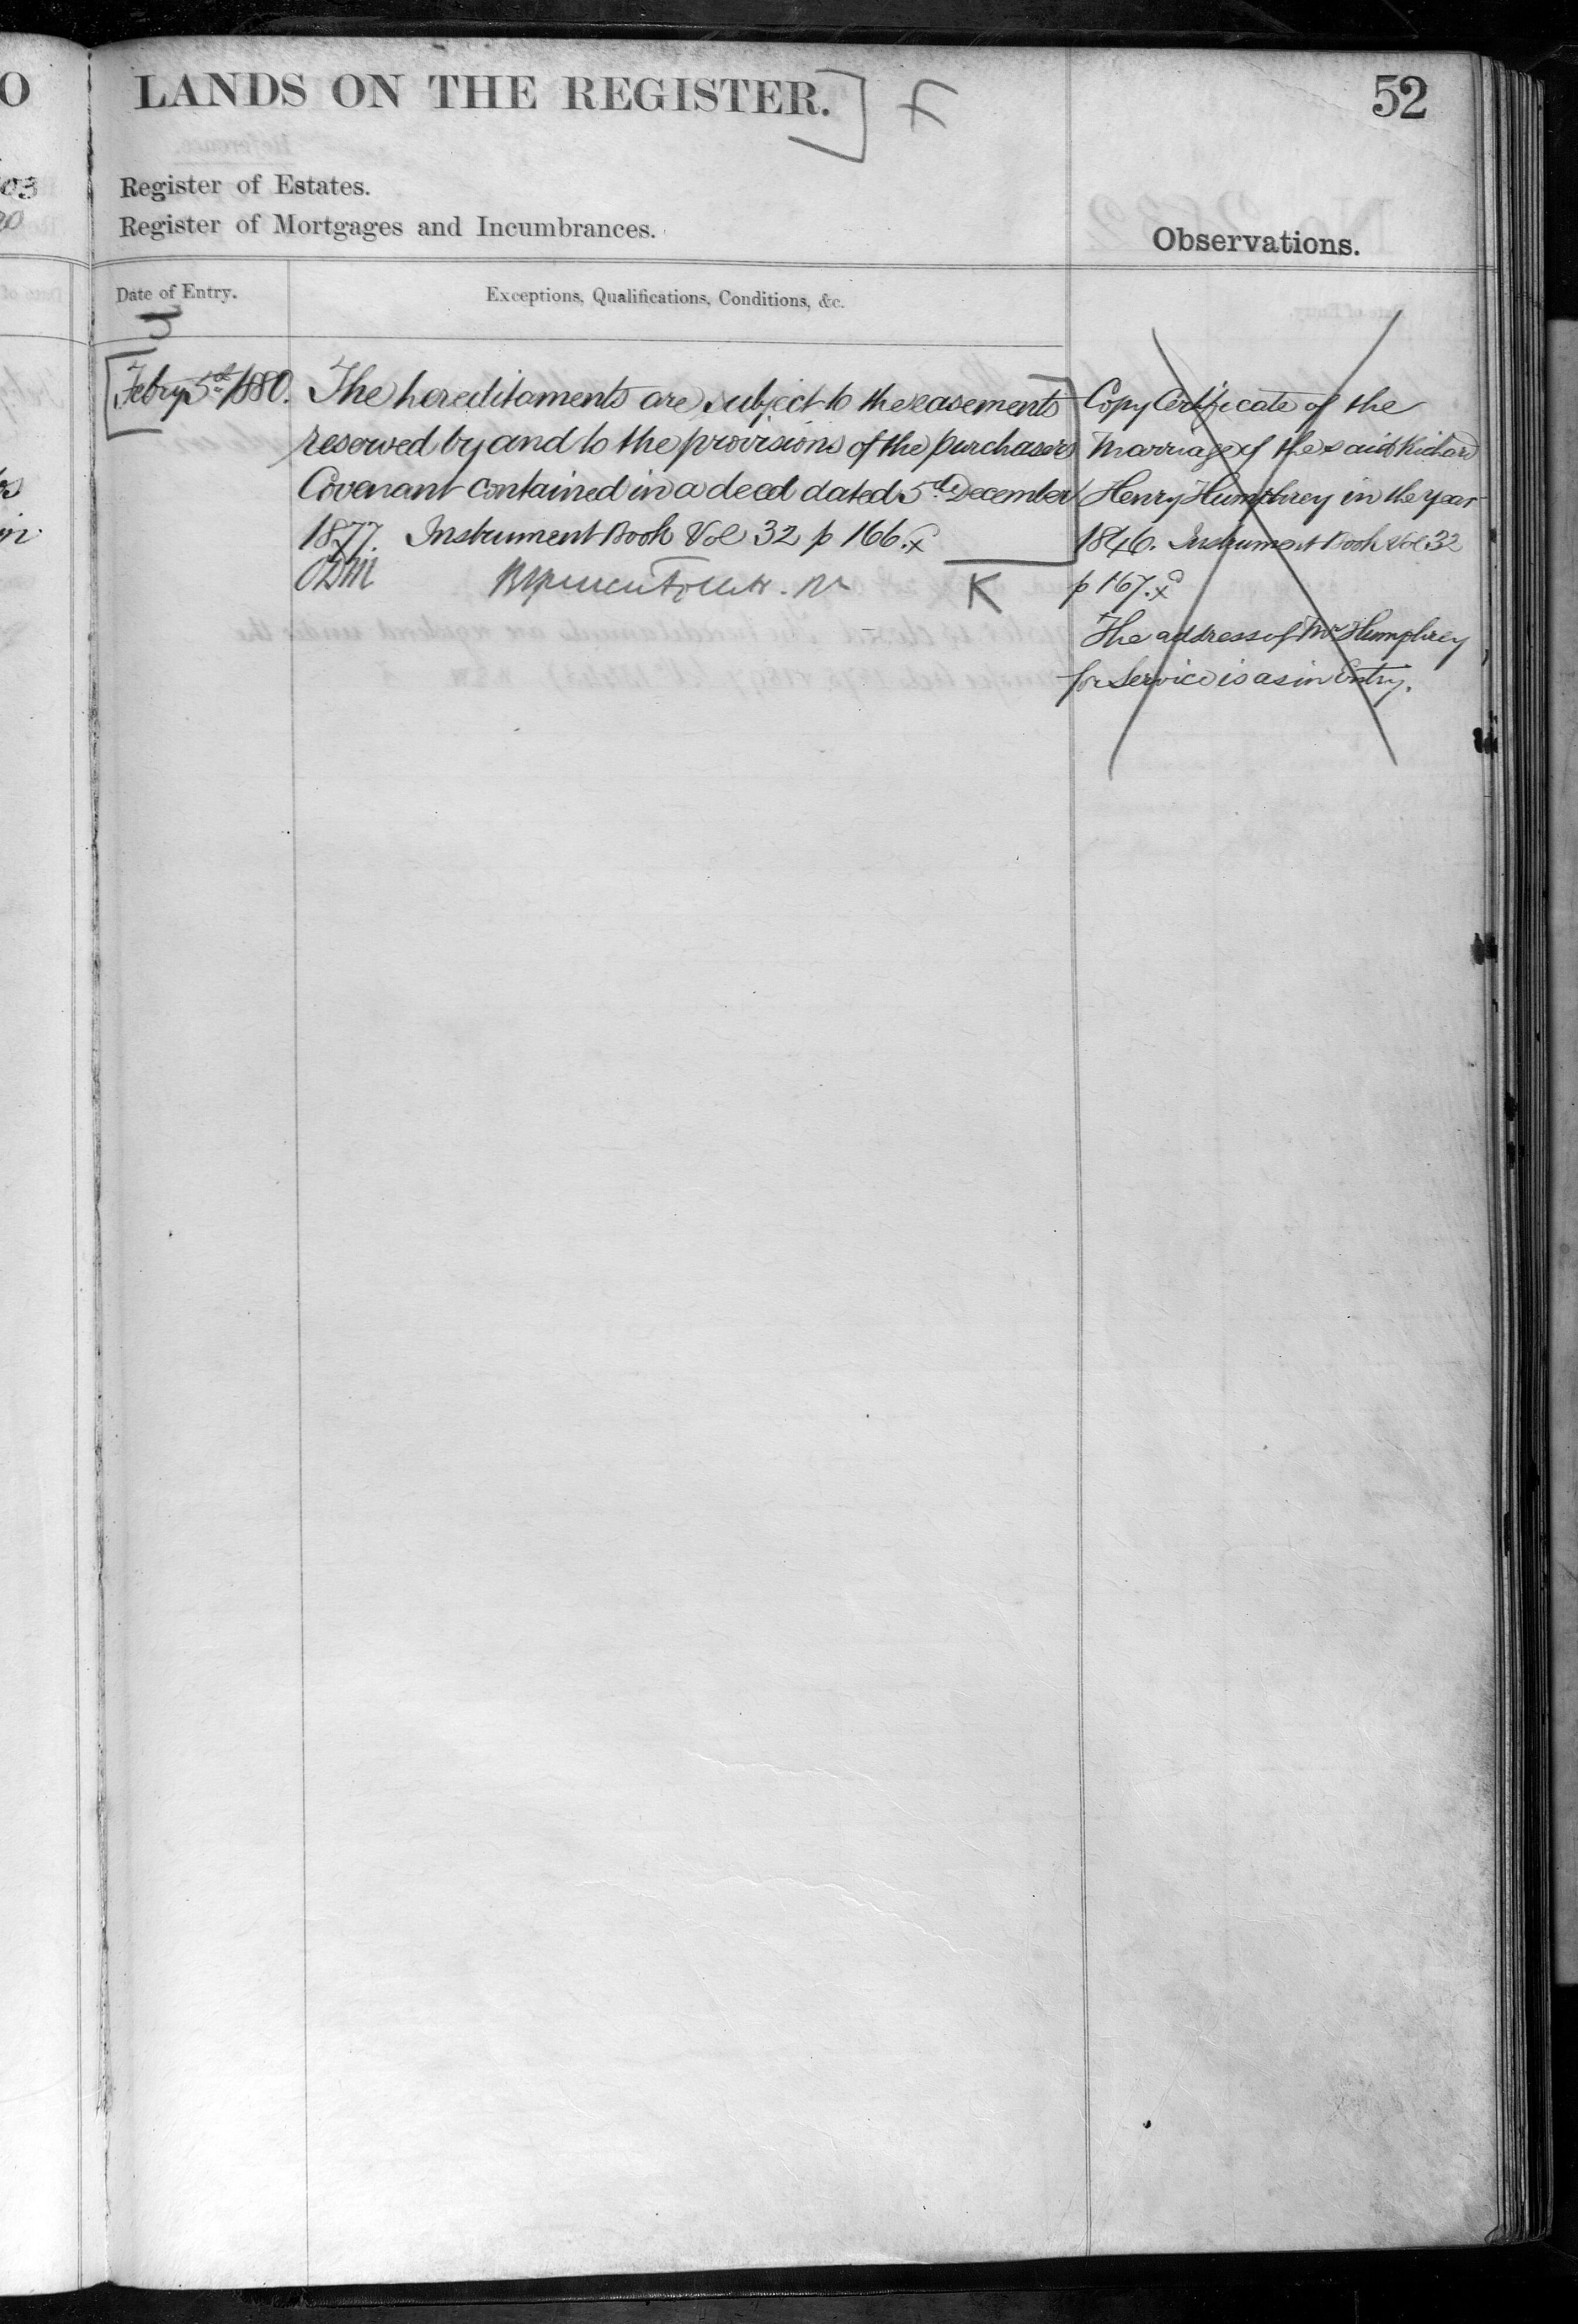 LANDS ON THE REGISTER.
52
Register of Estates.
Register of Mortgages and Incumbrances.
Observations.
Date of Entry.
Exceptions, Qualifications, Conditions, &c.
Febry 5th 1880.
The hereditaments are subject to the easements
reserved by and to the provisions of the purchasers
Covenant contained in a deed dated 5th December
1877. Instrument Book Vol 32 p 166.
K
Copy Certificate of the
Marriage of the said Richard
Henry Humphrey in the year
1846. Instrument Book Vol 32
p 167.
The address of Mr Humphrey
for Service is as in Entry.